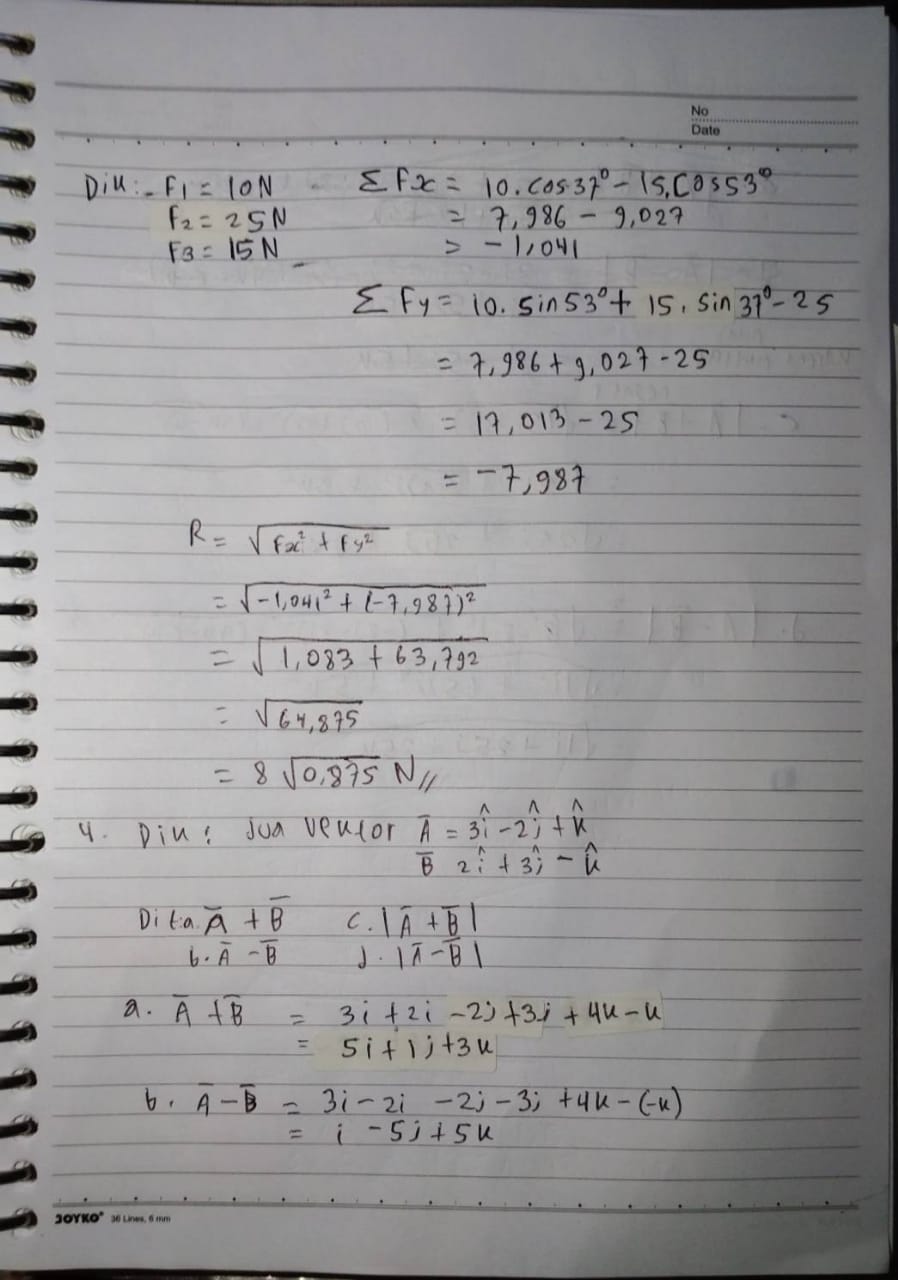 No
Date
Dik:- F1 = 10N ΣFx = 10.cos37° - 15.Cos53°
F2 = 25N = 7,986 - 9,027
F3 = 15N = -1,041
ΣFy = 10. sin53° + 15. sin37° - 25
= 7,986 + 9,027 - 25
= 17,013 - 25
= -7,987
R = √Fx² + Fy²
= √-1,041² + (-7,987)²
= √1,083 + 63,792
= √64,875
= 8 √0,875 N//
4. Dik: dua vektor Ā = 3î - 2ĵ + k̂
B̄ 2î + 3ĵ - k̂
Dit:a. Ā + B̄ c. |Ā + B̄|
b. Ā - B̄ d. |Ā - B̄|
a. Ā + B̄ = 3i + 2i - 2j + 3j + 4k - k
= 5i + 1j + 3k
b. Ā - B̄ = 3i - 2i - 2j - 3j + 4k - (-k)
= i - 5j + 5k
JOYKO® 36 Lines, 6 mm